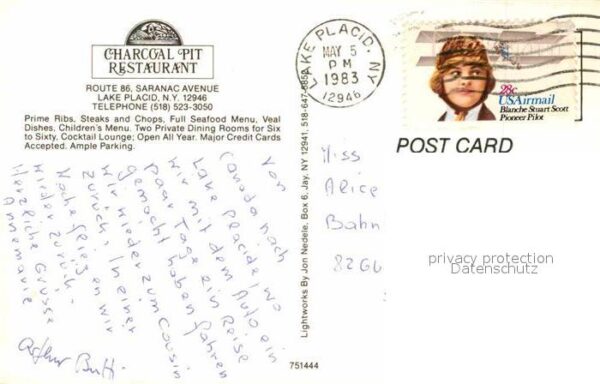 CHARCOAL PIT
RESTAURANT
ROUTE 86, SARANAC AVENUE
LAKE PLACID, N.Y. 12946
TELEPHONE (518) 523-3050
Prime Ribs, Steaks and Chops, Full Seafood Menu, Veal
Dishes, Children's Menu. Two Private Dining Rooms for Six
to Sixty, Cocktail Lounge; Open All Year. Major Credit Cards
Accepted. Ample Parking.
Von
Canada nach
Lake placid, wo
wir mit dem Auto ein
paar Tage ein Reise
gemacht haben fahren
wir wieder zum Cousin
zurück. In einer
Woche fliegen wir
wieder zurück.
Herzliche Grüsse
Annemarie
Arthur
Lightworks By Jon Nedele, Box 6, Jay, NY 12941, 518-647-
751444
LAKE PLACID, NY
MAY 5
PM
1983
12946
28c
USAirmail
Blanche Stuart Scott
Pioneer Pilot
POST CARD
Miss
Alice
Bahn
82
privacy protection
Datenschutz